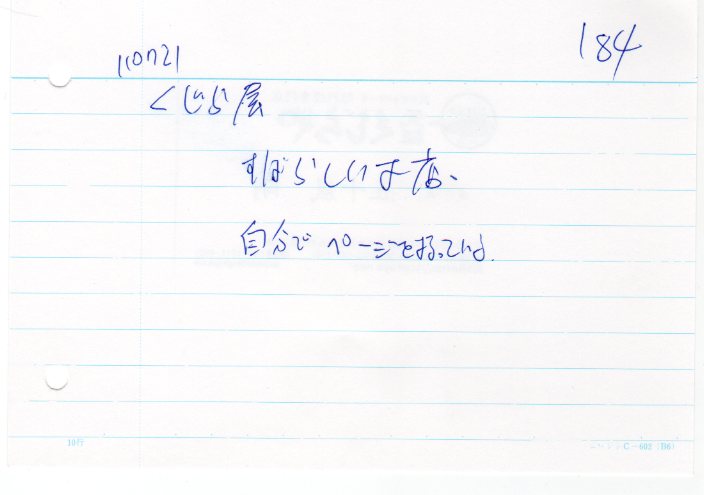 184
110721
くじら屋
すばらしいお店、
自分でページをもっている。
10行
C-602 (B6)